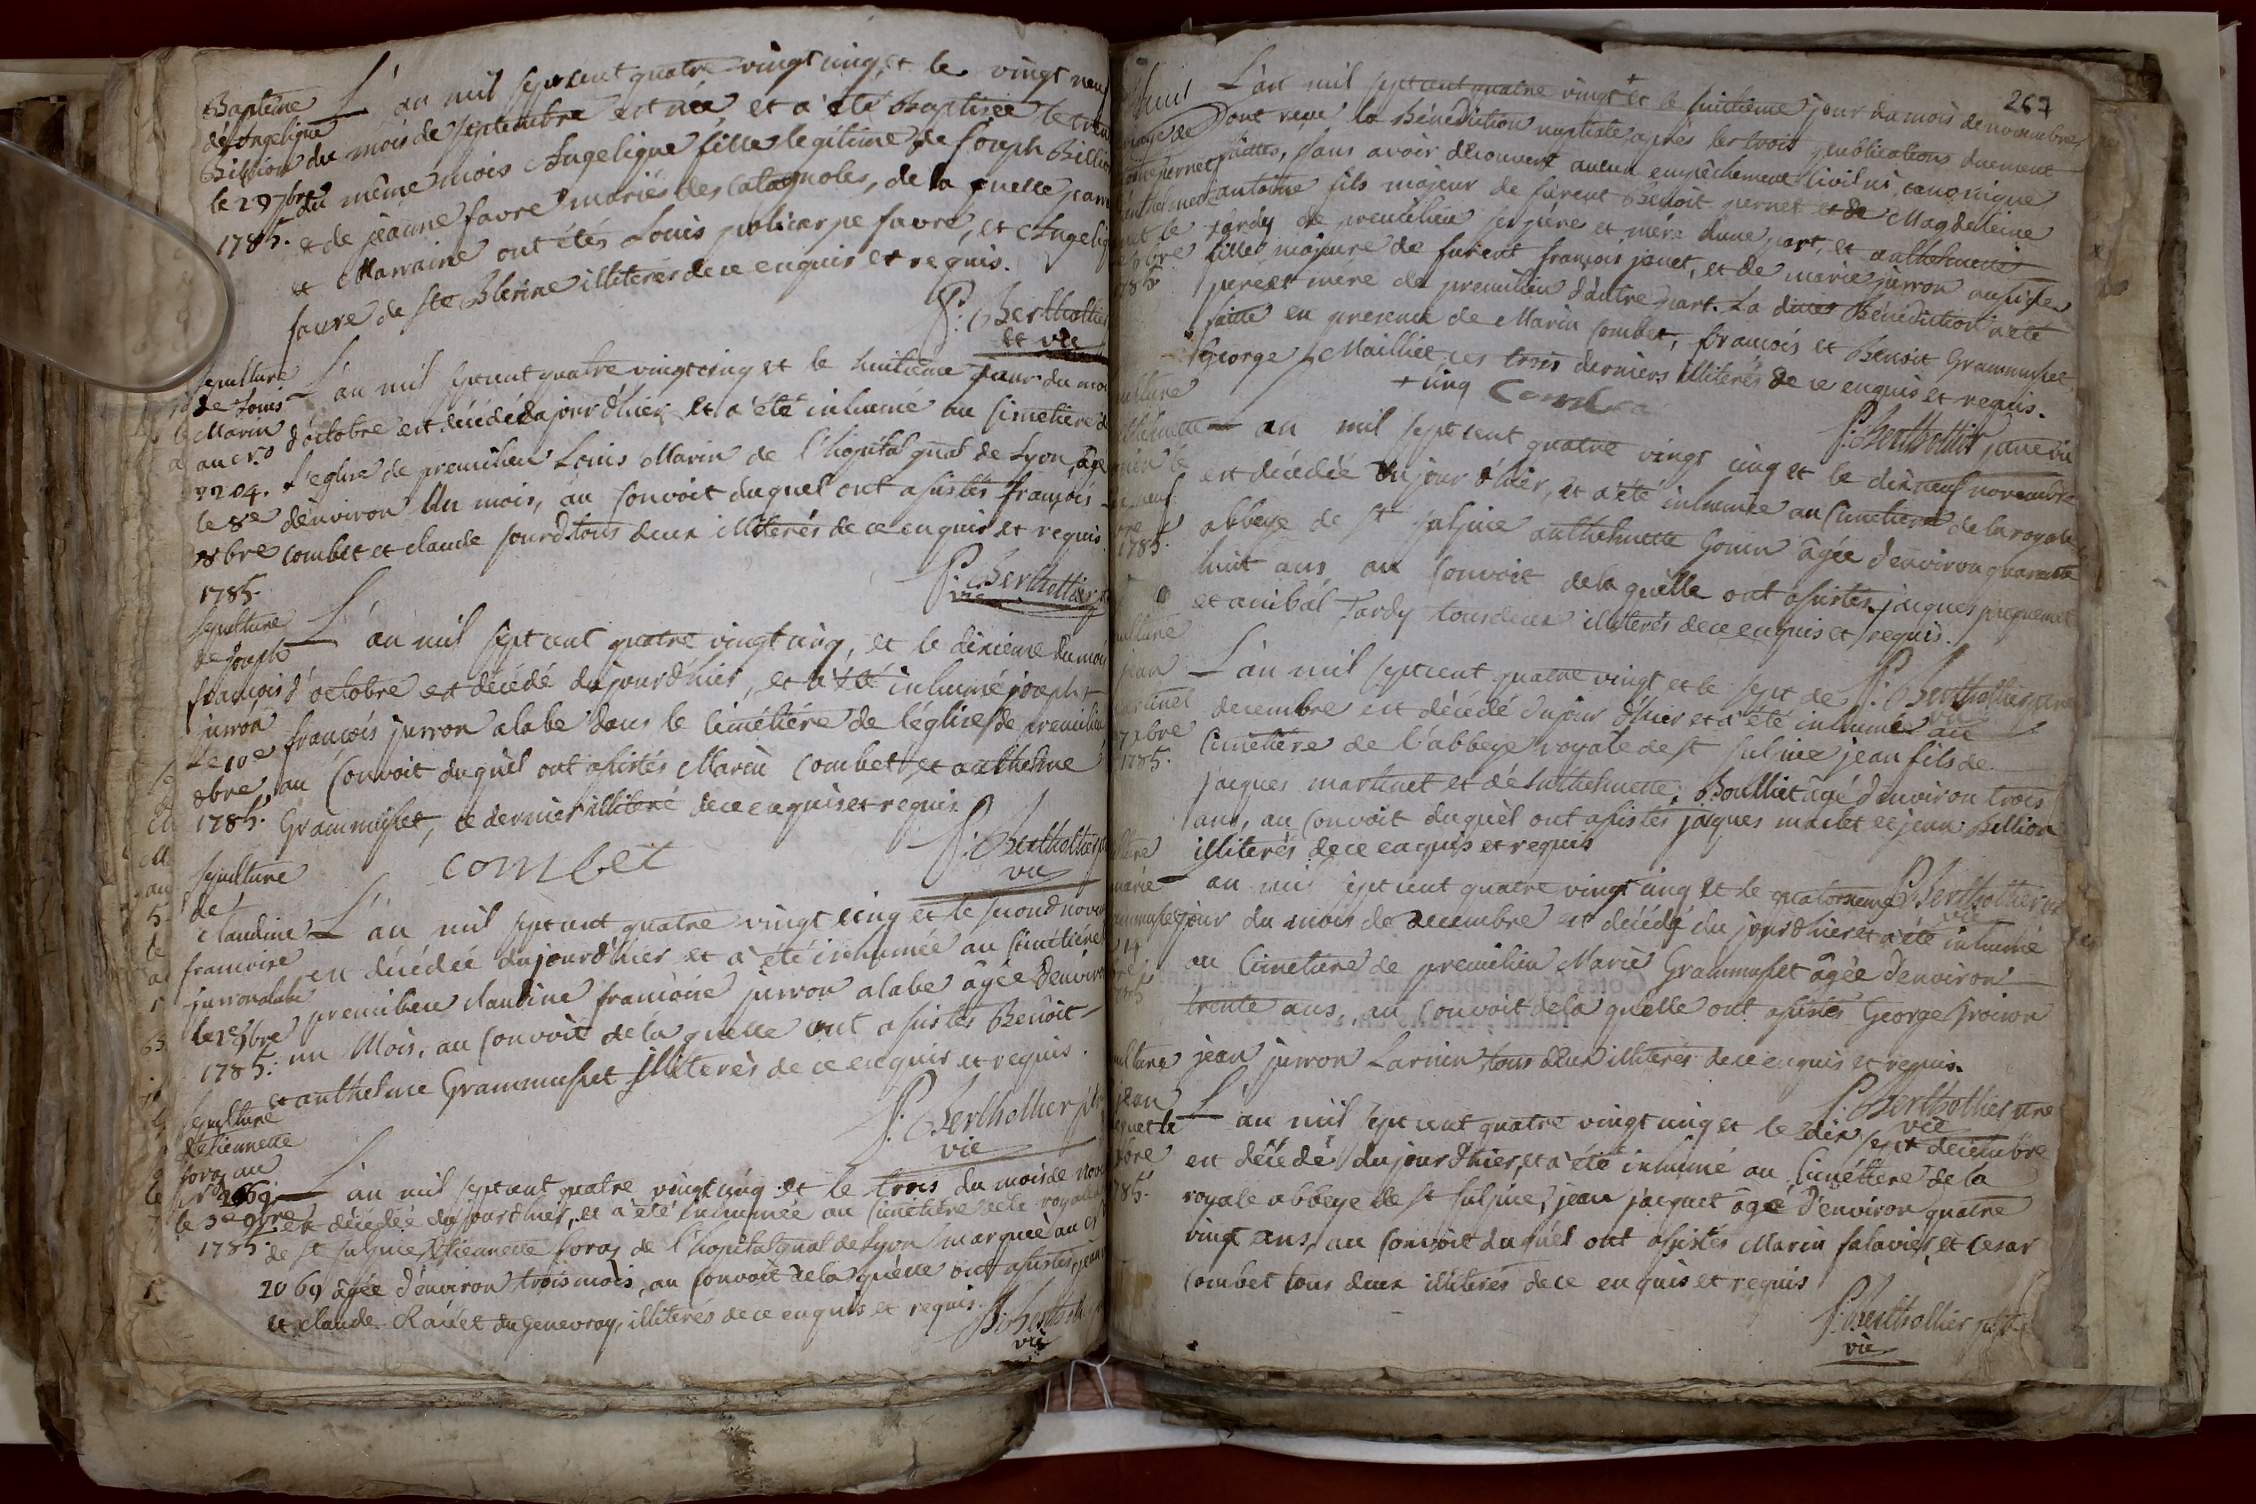 Baptême
d'Angelique
Billion
le 29 7bre
1785.
L'an mil sept cent quatre vingt cinq, et le vingt neuf
du mois de septembre est née et a été Baptisée le
du même mois Angelique fille legitime de Joseph
et de jeanne favre mariés des Catagnoles, de la quelle
et Marraine ont étés Louis policarpe favre, et
favre de ste Blerine illiterés de ce enquis et requis.
P. Berthollier
et vic
sepulture
de Louis
Marin
au nro
2204.
le 8e
8bre
1785.
L'an mil sept cent quatre vingt cinq et le huitieme jour du
d'octobre est décédé du jour d'hier, et a été inhumé au Cimetiere
l'eglise de premilieu Louis Marin de l'hopital gnal de Lyon, âgé
d'environ Un mois, au Convoit duquel ont assistés françois
combet et claude sourd tous deux illiterés de ce enquis et requis
P. Berthollier
vic
sepulture
de joseph
françois
jurron
Le 10e
8bre
1785.
L'an mil sept cent quatre vingt cinq, et le dixieme du
d'octobre est décédé du jour d'hier, et a été inhumé joseph
françois jurron alabe dans le cimétiére de l'église de premilieu
au Convoit duquel ont assistés Marin Combet et anthelme
Grammusset, ce dernier illiteré de ce enquis et requis.
P. Berthollier
vic
combet
sepulture
de
claudine
francoise
jurron alabe
le 2e 9bre
1785.
L'an mil sept cent quatre vingt cinq et le second
est décédée du jour d'hier et a été inhumée au Cimétiére
premilieu claudine francoise jurron alabe âgée d'environ
un Mois, au Convoit de la quelle ont assistés Benoît
et anthelme Grammusset illiterès de ce enquis et requis.
P. Berthollier
vic
sepulture
d'etiennette
foras au
nro 2069.
le 3e 9bre
1785.
L'an mil sept cent quatre vingt cinq et le trois du mois de
est décédée du jour d'hier, et a été inhumée au Cimetiere de la royale
de st sulpice, Etiennette foras de l'hopital gnal de Lyon marquée au
2069 âgée d'environ trois mois, au Convoit de la quelle ont assistés
et claude Ravet du genevray, illiterés de ce enquis et requis.
P. Berthollier
vic
267
L'an mil sept cent quatre vingt + et le huitieme jour du mois de novembre
ont reçu la Bénédiction nuptiale après les trois publications duement
faittes, sans avoir découvert aucun empêchement Civil ni canonique
antoine fils majeur de furent Benoit pernet et de Magdeleine
tardy de premilieu ses pere et mére d'une part, et anthelmette
fille majeure de furent françois jenet, et de marie jurron aussi ses
pere et mere de premilieu d'autre part. La ditte Bénédiction a été
faitte en presence de Marin Combet, francois et Benoit Grammusset,
George Mailliet, ces trois derniers illiterés de ce enquis et requis.
+ cinq
Combet
P. Berthollier
an mil sept cent quatre vingt cinq et le dix neuf novembre
est décédée du jour d'hier, et a été inhumée au Cimetiere de la royale
1785.
abbeye de st sulpice anthelmette Gonin âgée d'environ quarante
huit ans, au Convoit de la quelle ont assistés, jacques
et anibal Tardy tous deux illiterés de ce enquis et requis.
P. Berthollier
L'an mil sept cent quatre vingt et le sept de
decembre est décédé du jour d'hier et a été inhumé au
Cimetiére de l'abbeye royale de st sulpice jean fils de
1785.
jacques martinet et d'Anthelmette Boulliet âgé d'environ trois
ans, au Convoit duquel ont assistés jacques et jean Billion
illiterés de ce enquis et requis
P. Berthollier
vic
an mil sept cent quatre vingt cinq et le quatorzieme
jour du mois de decembre est décédé du jour d'hier et a été inhumé
au Cimetiere de premilieu Marie Grammusset âgée d'environ
trente ans, au Convoit de la quelle ont assistés George
jean jurron Larnin tous deux illiterés de ce enquis et requis.
P. Berthollier
vic
jean
L'an mil sept cent quatre vingt cinq et le dix sept decembre
est décédé du jour d'hier, et a été inhumé au Cimétiere de la
royale abbeye de st sulpice, jean jacquet âgé d'environ quatre
vingt ans, au Convoit duquel ont assistés Marin salavier, et Cesar
Combet tous deux illiterés de ce enquis et requis
P. Berthollier
vic